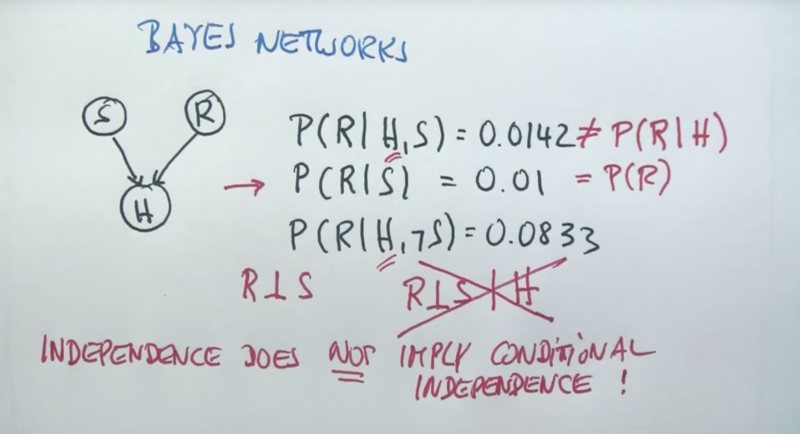 BAYES NETWORKS
S R
H
P(R|H,S) = 0.0142 ≠ P(R|H)
→ P(R|S) = 0.01 = P(R)
P(R|H,¬S) = 0.0833
R⊥S R⊥S|H
INDEPENDENCE DOES NOT IMPLY CONDITIONAL
INDEPENDENCE !